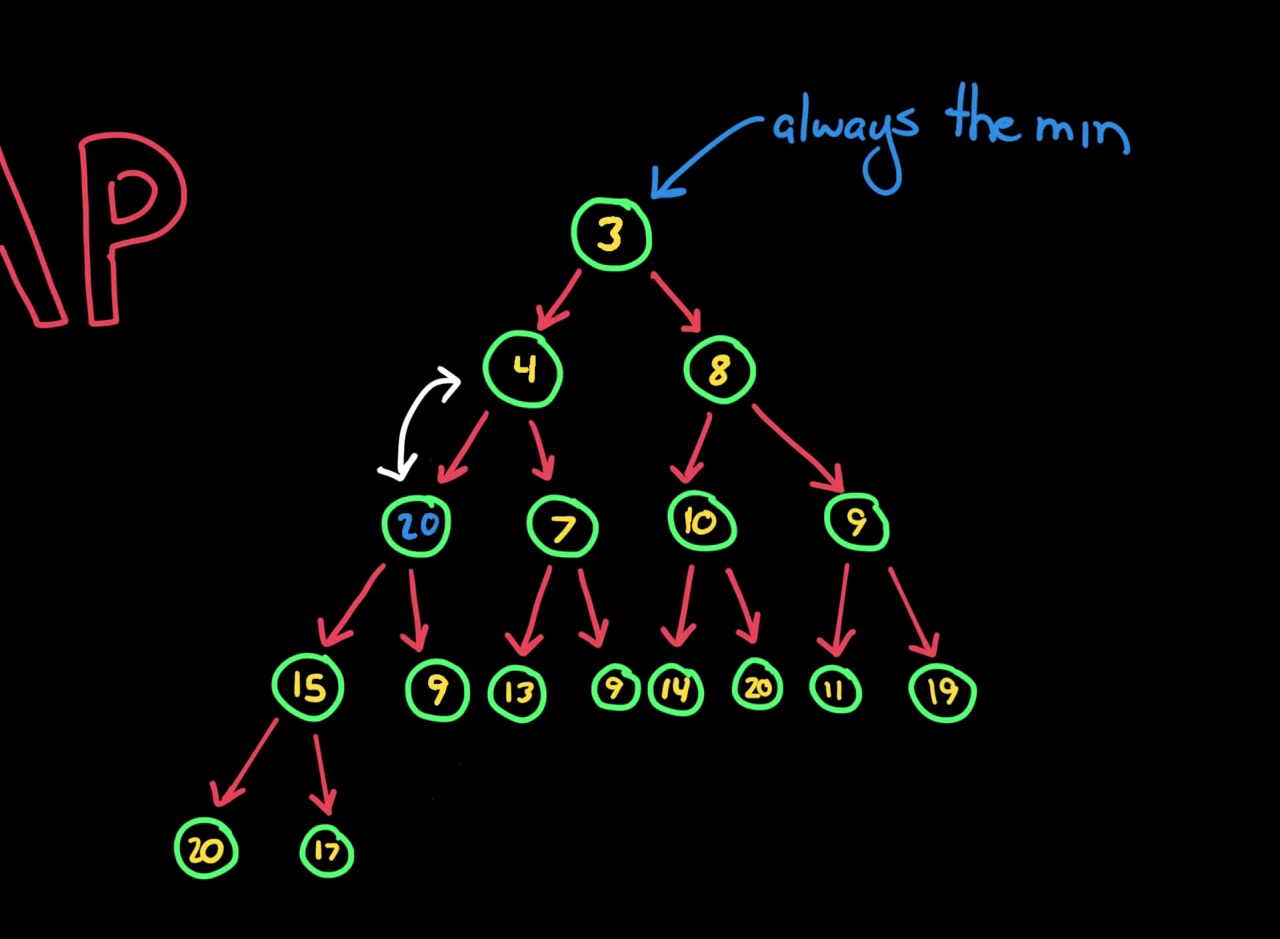 always the min
AP
3
4 8
20 7 10 9
15 9 13 9 14 20 11 19
20 17